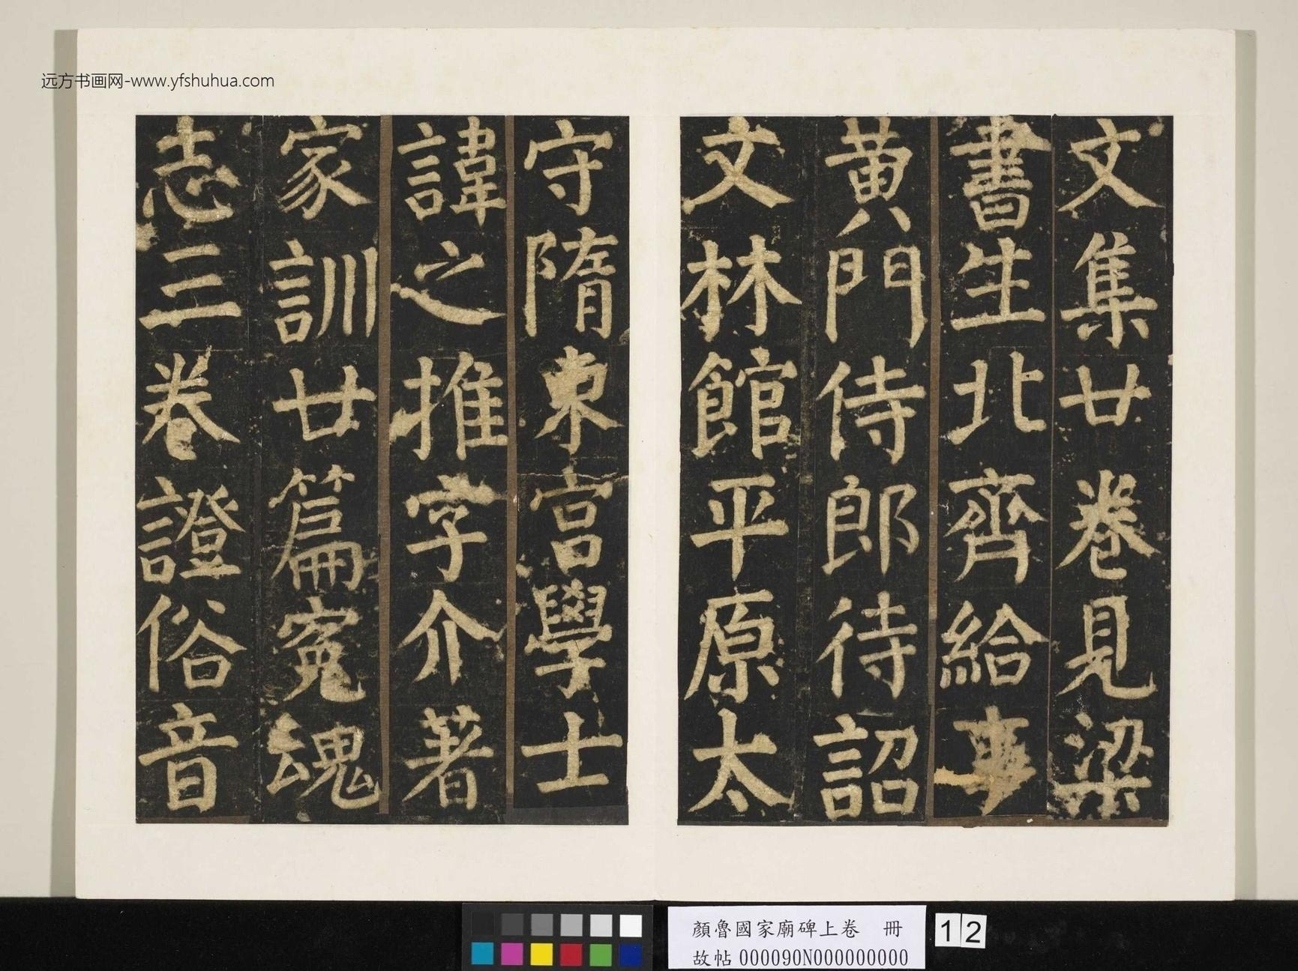 远方书画网-www.yfshuhua.com
文集廿卷見梁
書生北齊給事
黄門侍郎待詔
文林館平原太
守隋東宮學士
諱之推字介著
家訓廿篇寃魂
志三卷證俗音
顏魯國家廟碑上卷　冊
故帖000090N000000000
12